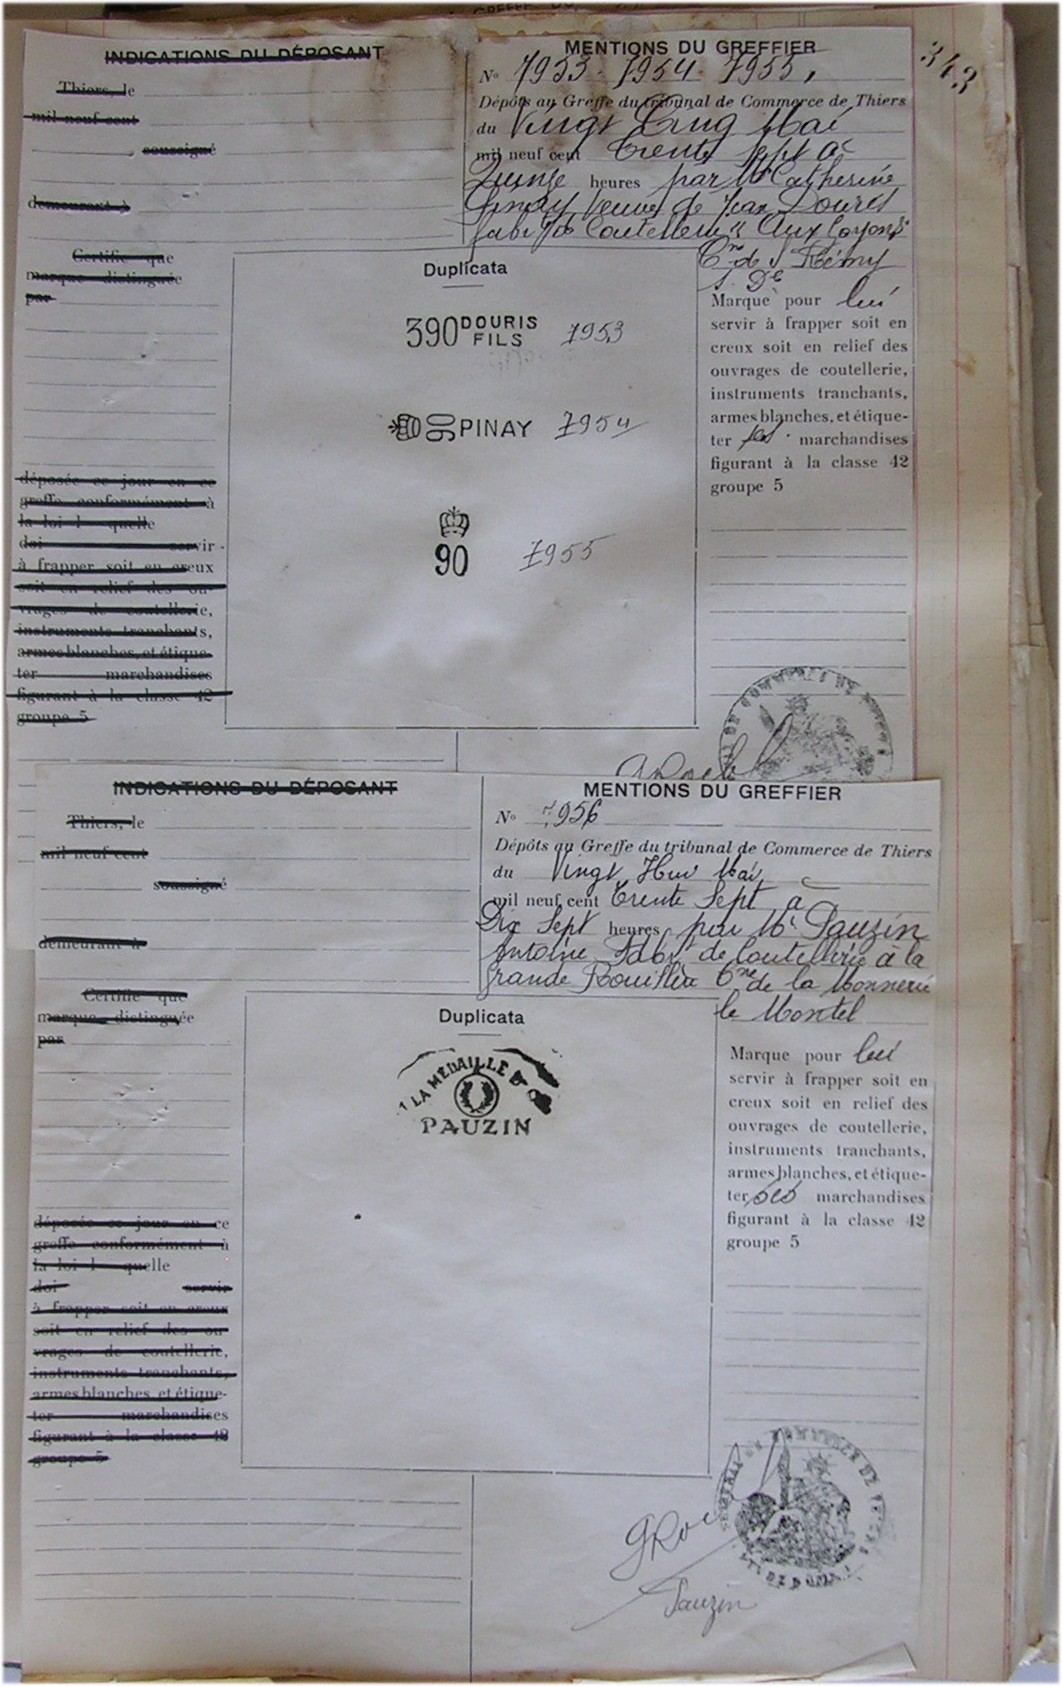 343
INDICATIONS DU DÉPOSANT
Thiers, le
mil neuf cent
soussigné
demeurant à
Certifie que
marque distinguée
par
déposée ce jour en ce
greffe conformément à
la loi l quelle
doi servir
à frapper soit en creux
soit en relief des ou-
vrages de coutellerie,
instruments tranchants,
armes blanches, et étique-
ter marchandises
figurant à la classe 42
groupe 5
MENTIONS DU GREFFIER
No 7953. 7954. 7955.
Dépôts au Greffe du tribunal de Commerce de Thiers
du Vingt Cinq Mai
mil neuf cent Trente Sept à
Quinze heures par Me Catherine
Pinay Veuve de Jean Douris
fabte de Coutellerie "Aux Goyons"
Cne de St Rémy
s. De
Marque pour lui
servir à frapper soit en
creux soit en relief des
ouvrages de coutellerie,
instruments tranchants,
armes blanches, et étique-
ter ses marchandises
figurant à la classe 42
groupe 5
Duplicata
390 DOURIS FILS 7953
90 PINAY 7954
90 7955
INDICATIONS DU DÉPOSANT
Thiers, le
mil neuf cent
soussigné
demeurant à
Certifie que
marque distinguée
par
déposée ce jour en ce
greffe conformément à
la loi l quelle
doi servir
à frapper soit en creux
soit en relief des ou-
vrages de coutellerie,
instruments tranchants,
armes blanches, et étique-
ter marchandises
figurant à la classe 42
groupe 5
MENTIONS DU GREFFIER
No 7956
Dépôts au Greffe du tribunal de Commerce de Thiers
du Vingt Huit Mai
mil neuf cent Trente Sept à
Dix Sept heures par Mr Pauzin
Antoine Fabt de Coutellerie à la
Grande Rouillère Cne de la Monnerie
le Montel
Marque pour lui
servir à frapper soit en
creux soit en relief des
ouvrages de coutellerie,
instruments tranchants,
armes blanches, et étique-
ter ses marchandises
figurant à la classe 42
groupe 5
Duplicata
A LA MEDAILLE D'
PAUZIN
Pauzin